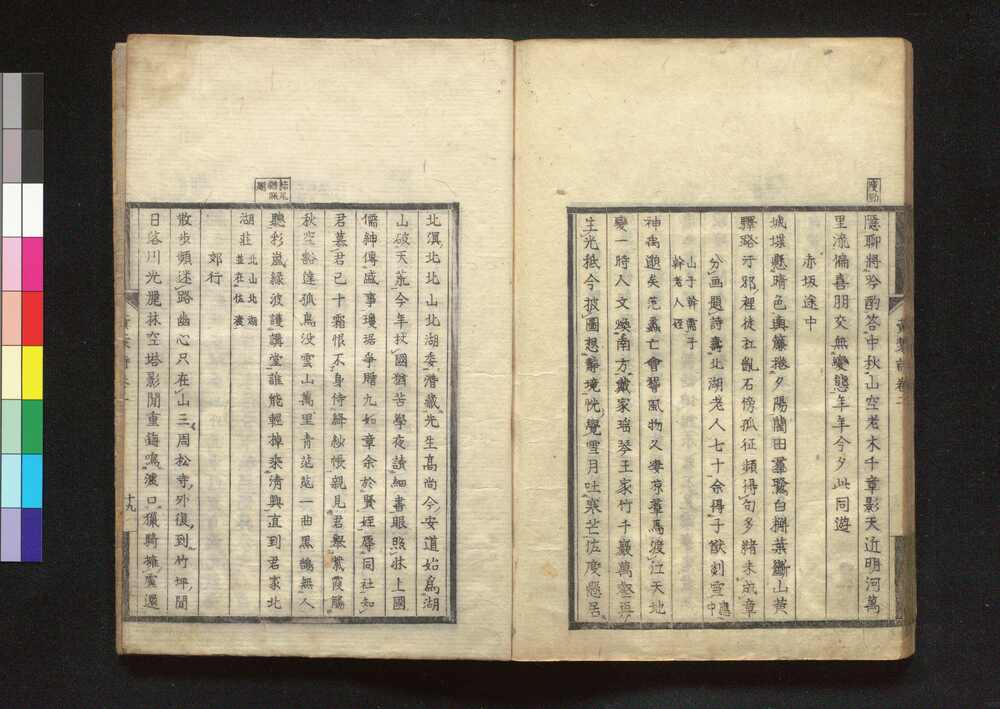 隱聊將吟酌答中秋山空老木千章影天近明河萬
里流偏喜朋交無變態年年今夕此同遊
赤坂途中
城堞懸晴色輿簾捲夕陽蘭田羣鷺白櫸葉斷山黃
驛路牙邪裡徒扛亂石傍孤征頻得句多緒未成章
分画題詩壽北湖老人七十余得子猷剡雪
山子幹霽子
幹老人姪
神禹遯矣范蠡亡會稽風物久凄凉羣馬渡江天地
變一時人文煥南方戴家瑤琴王家竹千巖萬壑
生光抵今披圖想靜境恍覺雪月吐寒芒佐度隱居
北溟北北山北湖委潛藏先生高尚今安道始爲湖
山破天荒今年杖國猶苦學夜讀細書眼照牀上國
儒紳傳盛事瓊琚爭贈九如章余於賢姪辱同社知
君慕君已十霜恨不身侍絳紗帳親見君舉紫霞觴
秋空豁達孤鳥没雲山萬里青茫茫一曲黑鶴無人
聽彩嵐緑波護講堂誰能輕棹乘清興直到君家北
湖莊
北山北湖
並在佐渡
郊行
散步頻迷路幽心只在山三周松寺外復到竹坪間
日落川光麗林空塔影閒重鐘鳴渡口獵騎擁賓還
十九